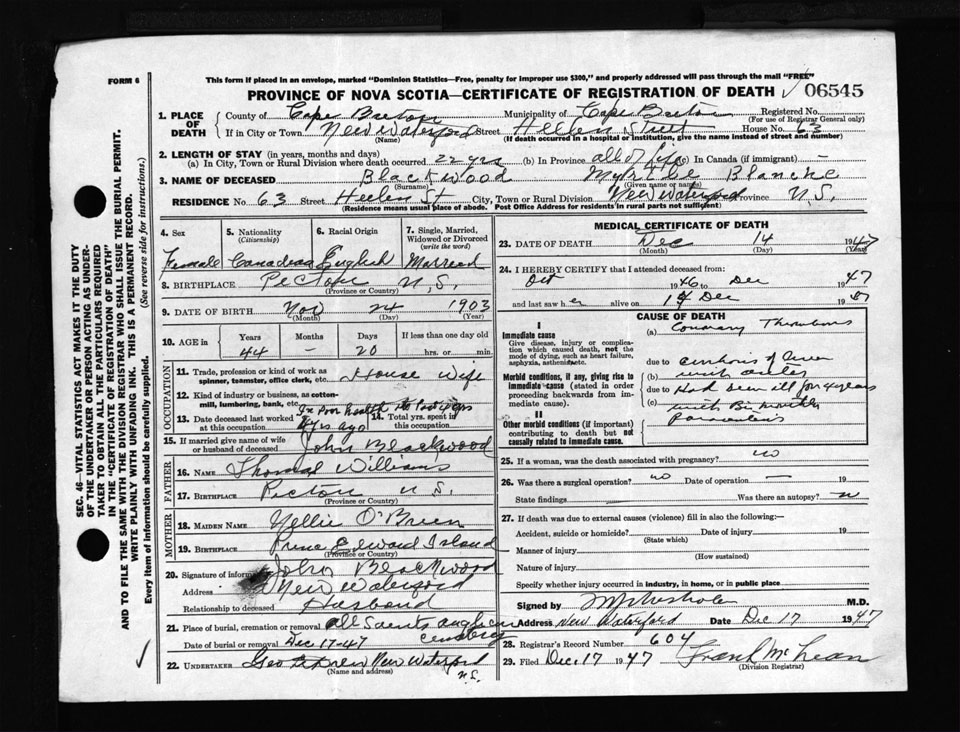 FORM 6
This form if placed in an envelope, marked "Dominion Statistics—Free, penalty for improper use $300," and properly addressed will pass through the mail "FREE"
PROVINCE OF NOVA SCOTIA—CERTIFICATE OF REGISTRATION OF DEATH 06545
1. PLACE OF DEATH County of Cape Breton Municipality of Cape Breton Registered No. (For use of Registrar General only)
If in City or Town New Waterford (Name) Street Hellen Street House No. 63
(If death occurred in a hospital or institution, give the name instead of street and number)
2. LENGTH OF STAY (in years, months and days)
(a) In City, Town or Rural Division where death occurred 22 yrs (b) In Province all of life (c) In Canada (if immigrant) —
3. NAME OF DECEASED Blackwood (Surname) Myrtle Blanche (Given name or names)
RESIDENCE No. 63 Street Hellen St City, Town or Rural Division New Waterford Province N.S.
(Residence means usual place of abode. Post Office Address for residents in rural parts not sufficient)
4. Sex Female
5. Nationality (Citizenship) Canadian
6. Racial Origin English
7. Single, Married, Widowed or Divorced (write the word) Married
8. BIRTHPLACE Pictou N.S. (Province or Country)
9. DATE OF BIRTH Nov (Month) 24 (Day) 1903 (Year)
10. AGE IN Years 44 Months — Days 20 If less than one day old hrs. or min.
OCCUPATION
11. Trade, profession or kind of work as spinner, teamster, office clerk, etc. House Wife
12. Kind of industry or business, as cotton-mill, lumbering, bank, etc. In Poor health
13. Date deceased last worked at this occupation 4 yrs ago
14. Total yrs. spent in this occupation
15. If married give name of wife or husband of deceased John Blackwood
FATHER
16. NAME Thomas Williams
17. BIRTHPLACE Pictou N.S. (Province or Country)
MOTHER
18. MAIDEN NAME Nellie O'Brien
19. BIRTHPLACE Prince Edward Island (Province or Country)
20. Signature of informant John Blackwood
Address New Waterford
Relationship to deceased Husband
21. Place of burial, cremation or removal All Saints Anglican Cemetery
Date of burial or removal Dec 17-47
22. UNDERTAKER New Waterford N.S.
(Name and address)
MEDICAL CERTIFICATE OF DEATH
23. DATE OF DEATH Dec (Month) 14 (Day) 1947 (Year)
24. I HEREBY CERTIFY that I attended deceased from:
Oct 1946 to Dec 1947
and last saw her alive on 14 Dec 1947
CAUSE OF DEATH
I
Immediate cause
Give disease, injury or complication which caused death, not the mode of dying, such as heart failure, asphyxia, asthenia, etc.
(a) Coronary Thrombosis
due to cirrhosis of liver
Morbid conditions, if any, giving rise to immediate cause (stated in order proceeding backwards from immediate cause).
(b) with ascites
due to Had been ill for 4 years
(c) with
II
Other morbid conditions (if important) contributing to death but not causally related to immediate cause.
25. If a woman, was the death associated with pregnancy? no
26. Was there a surgical operation? no Date of operation — 19
State findings Was there an autopsy? no
27. If death was due to external causes (violence) fill in also the following:—
Accident, suicide or homicide? (State which) Date of injury 19
Manner of injury (How sustained)
Nature of injury
Specify whether injury occurred in industry, in home, or in public place
Signed by M.D.
Address New Waterford Date Dec 17 1947
28. Registrar's Record Number 604
29. Filed Dec. 17 1947 Frank McLean (Division Registrar)
SEC. 46—VITAL STATISTICS ACT MAKES IT THE DUTY
OF THE UNDERTAKER OR PERSON ACTING AS UNDER-
TAKER TO OBTAIN ALL THE PARTICULARS REQUIRED
IN THE "CERTIFICATE OF REGISTRATION OF DEATH"
AND TO FILE THE SAME WITH THE DIVISION REGISTRAR WHO SHALL ISSUE THE BURIAL PERMIT.
WRITE PLAINLY WITH UNFADING INK. THIS IS A PERMANENT RECORD.
Every item of information should be carefully supplied. (See reverse side for instructions.)